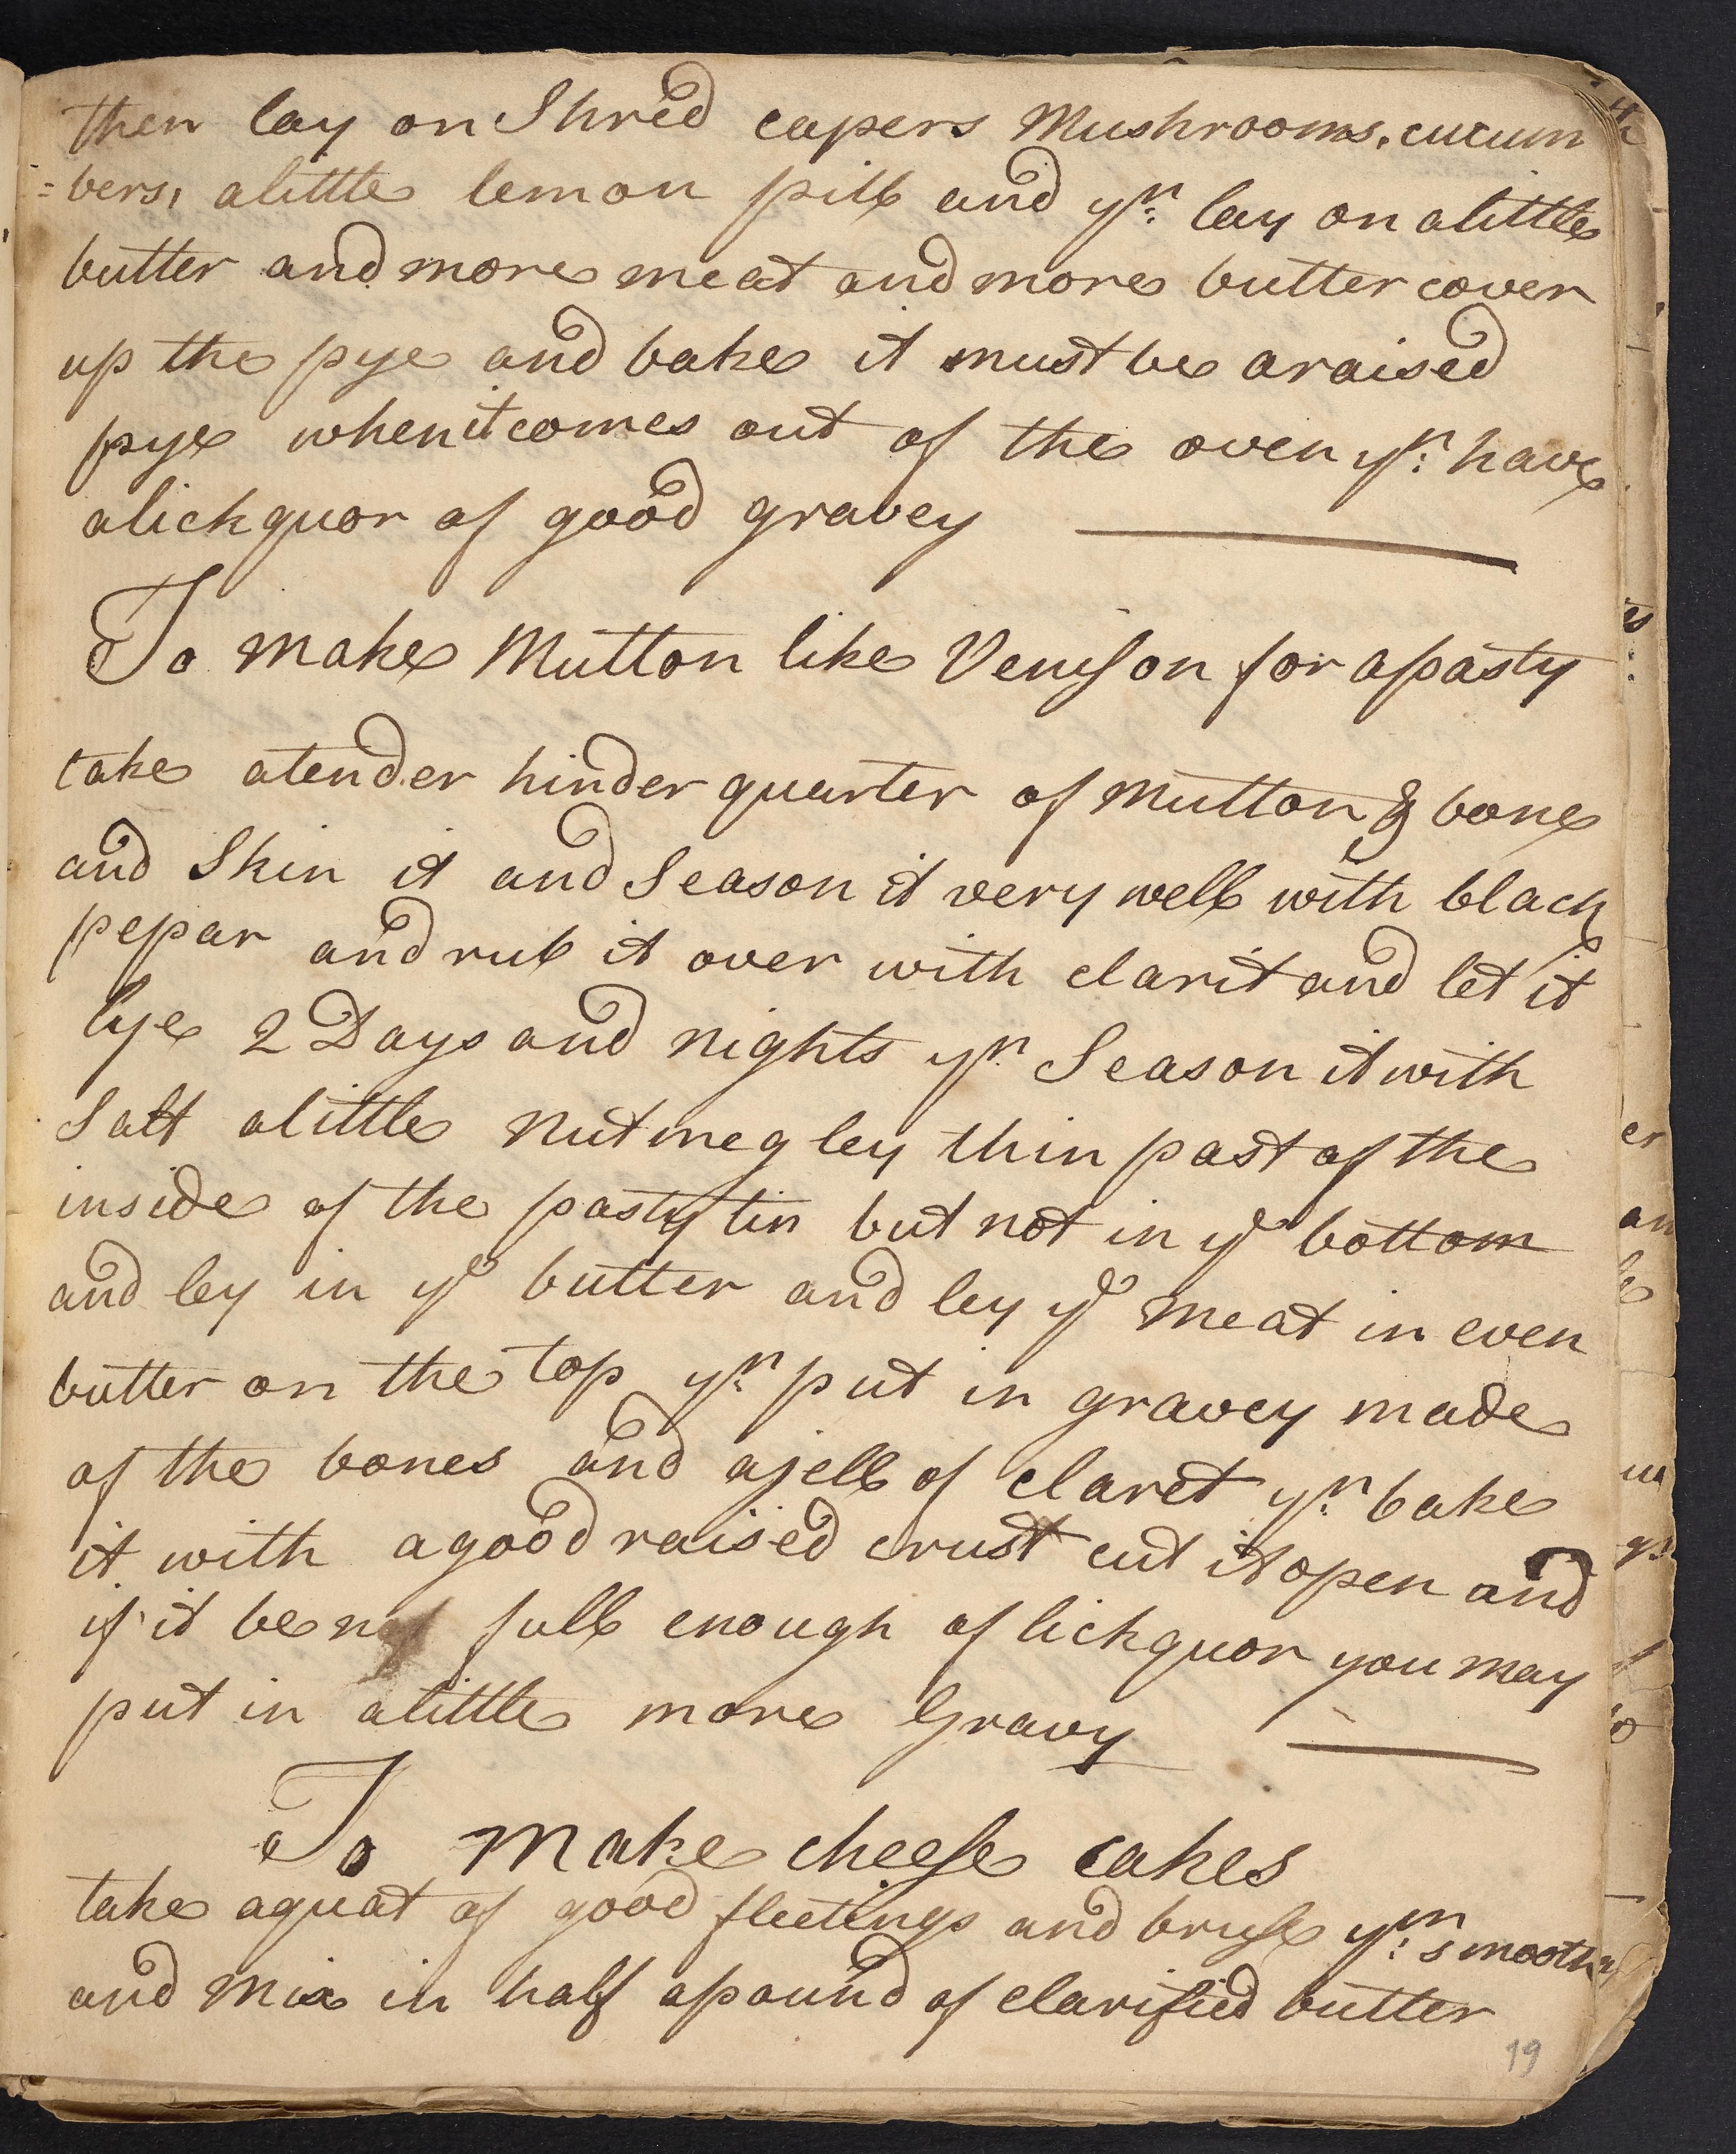 then lay on Shred capers Mushrooms, cucum
=bers, alittle lemon pill and yn: lay on alittle
butter and more meat and more butter cover
up the pye and bake it must be araised
pye when it comes out of the oven yn: have
alickquor of good gravey
To make Mutton like Venison for apasty
take atender hinder quarter of Mutton & bone
and Skin it and Season it very well with black
pepar and rub it over with clarit and let it
lye 2 Days and nights yn: Season it with
Salt alittle nutmeg ley thin past of the
inside of the pasty tin but not in ye bottom
and ley in ye butter and ley ye meat in even
butter on the top yn: put in gravey made
of the bones and ajell of claret yn: bake
it with agood raised crust cut it open and
if it be not full enough of lickquor you may
put in alittle more Gravy
To make cheese cakes
take aquat of good fleetings and bruse ym: smooth
and mix in half apound of clarified butter
19